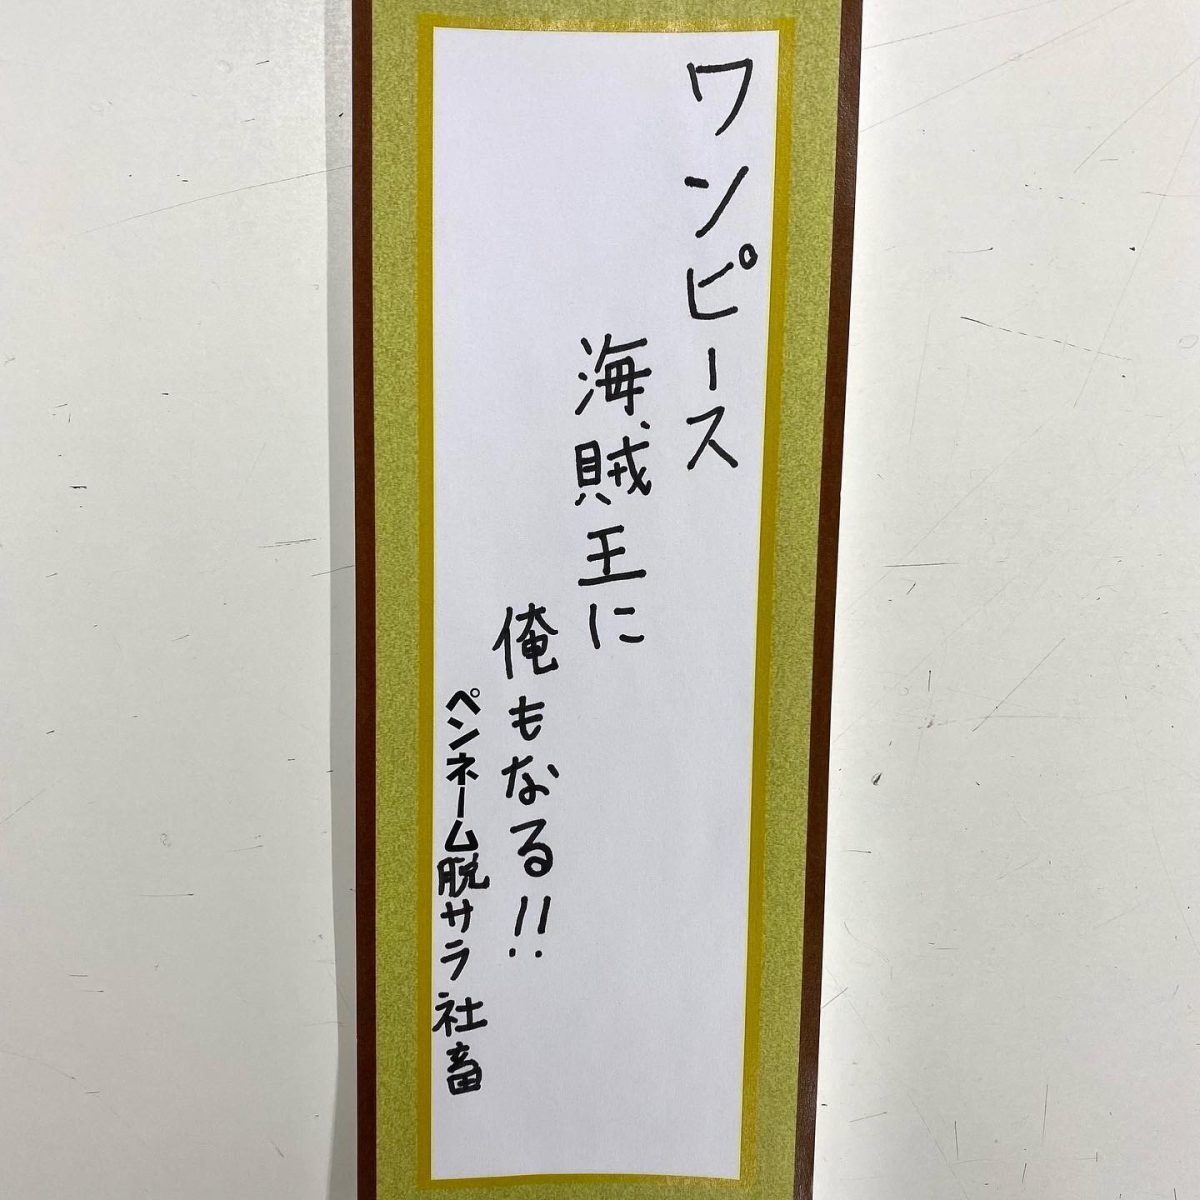 ワンピース
海賊王に
俺もなる!!
ペンネーム脱サラ社畜